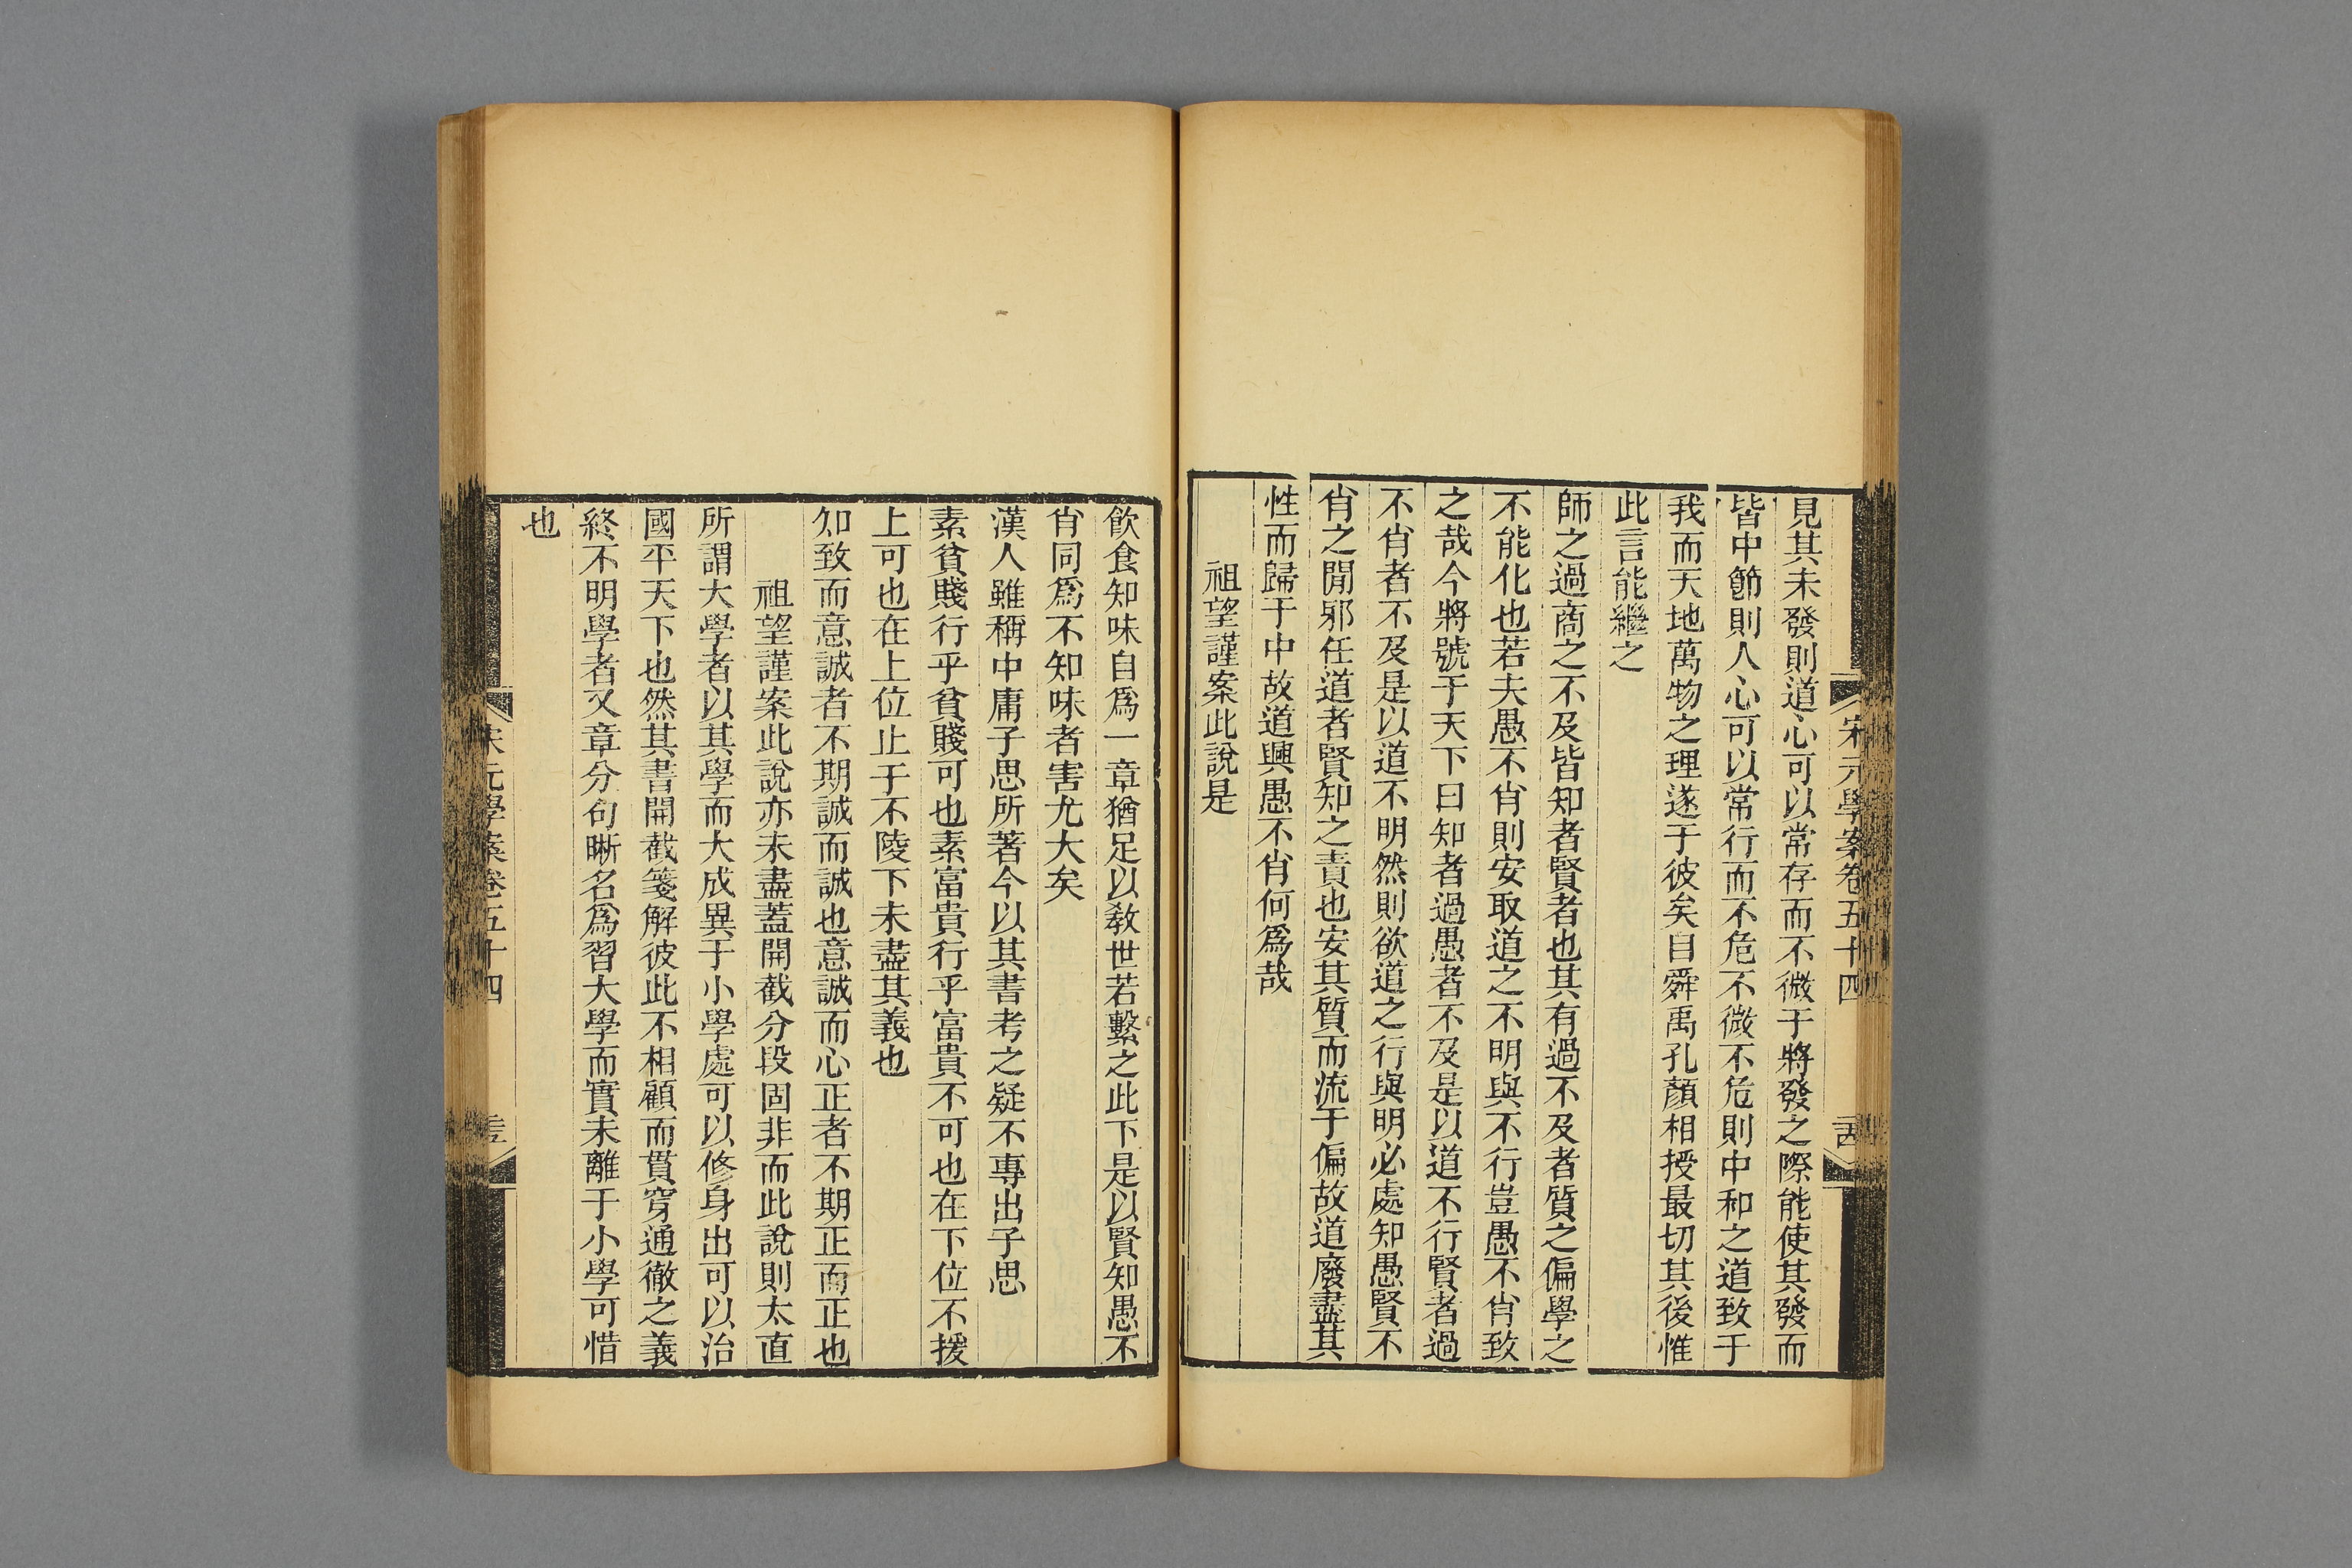 宋元學案卷五十四
見其未發則道心可以常存而不微于將發之際能使其發而
皆中節則人心可以常行而不危不微不危則中和之道致于
我而天地萬物之理遂于彼矣自舜禹孔顏相授最切其後惟
此言能繼之
師之過商之不及皆知者賢者也其有過不及者質之偏學之
不能化也若夫愚不肖則安取道之不明與不行豈愚不肖致
之哉今將號于天下曰知者過愚者不及是以道不行賢者過
不肖者不及是以道不明然則欲道之行與明必處知愚賢不
肖之閒邪任道者賢知之責也安其質而流于偏故道廢盡其
性而歸于中故道興愚不肖何爲哉
祖望謹案此說是
飲食知味自爲一章猶足以敎世若繫之此下是以賢知愚不
肖同爲不知味者害尤大矣
漢人雖稱中庸子思所著今以其書考之疑不專出子思
素貧賤行乎貧賤可也素富貴行乎富貴不可也在下位不援
上可也在上位止于不陵下未盡其義也
知致而意誠者不期誠而誠也意誠而心正者不期正而正也
祖望謹案此說亦未盡蓋開截分段固非而此說則太直
所謂大學者以其學而大成異于小學處可以修身出可以治
國平天下也然其書開截箋解彼此不相顧而貫穿通徹之義
終不明學者又章分句晰名爲習大學而實未離于小學可惜
也
宋元學案卷五十四